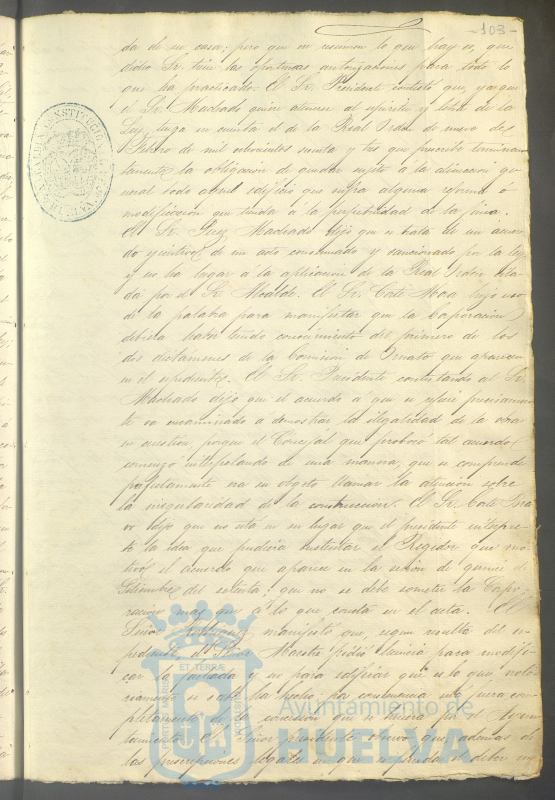 -103-
da de su casa; pero que en resumen lo que hay es, que
dicho Sr. tiene las oportunas autorizaciones para todo lo
que ha practicado. El Sr. Presidente contestó que, ya que
el Sr. Machado quiere atenerse al espíritu y letra de la
Ley, tenga en cuenta el de la Real Orden de nueve de
Febrero de mil ochocientos sesenta y tres que prescribe terminan
temente la obligacion de quedar sujeto á la alineacion ge
neral todo aquel edificio que sufra alguna reforma ó
modificacion que tienda á la perpetuidad de la finca.
El Sr. Perez Machado dijo que se trata de un acuer
do ejecutivo, de un acto consumado y sancionado por la ley
y no ha lugar á la aplicacion de la Real Orden cita
da por el Sr. Alcalde. El Sr. Cate Mora hizo uso
de la palabra para manifestar que la Corporacion
debiera haber tenido conocimiento del primero de los
dos dictámenes de la Comision de Ornato que aparecen
en el espediente. El Sr. Presidente contestando al Sr.
Machado dijo que el acuerdo á que se refiere precisamen
te va encaminado á demostrar la ilegalidad de la obra
en cuestion, porque el Concejal que provocó tal acuerdo
comenzó interpelando de una manera, que se comprende
perfectamente era su objeto llamar la atencion sobre
la irregularidad de la construccion. El Sr. Cate
dijo que no está en su lugar que el presidente interpre
te la idea que pudiera sustentar el Regidor que mo
tivó el acuerdo que aparece en la sesion de quince de
Setiembre de setenta; que no se debe someter la Corpo
racion mas que á lo que consta en el acta. El
Señor manifestó que, segun resulta del es
pediente el Señor Maestre pidió licencia para modifi
car la fachada y no para edificar que es lo que, noto
riamente se sabe ha hecho, por consecuencia
pletamente de la concesion que se hiciera por el Ayun
tamiento. El Señor presidente que además de
las prescripciones legales en que se funda el deber
Ayuntamiento de
HUELVA
ET TERRÆ
PORTUS MARIS
CUSTODIA